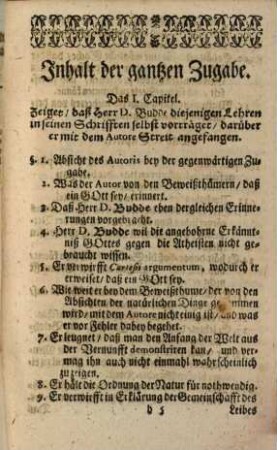 Inhalt der gantzen Zugabe.
Das I. Capitel.
Zeiget / daß Herr D. Budde diejenigen Lehren
in seinen Schrifften selbst vorträget / darüber
er mit dem Autore Streit angefangen.
§. 1. Absicht des Autoris bey der gegenwärtigen Zu-
gabe.
2. Was der Autor von den Beweißthümern / daß
ein GOtt sey / erinnert.
3. Daß Herr D. Budde eben dergleichen Erinne-
rungen vorgebracht.
4. Herr D. Budde wil die angebohrne Erkännt-
niß GOttes gegen die Atheisten nicht ge-
braucht wissen.
5. Er verwirfft Cartesii argumentum, wodurch er
erweiset / daß ein GOtt sey.
6. Wie weit er bey dem Beweißthume / der von den
Absichten der natürlichen Dinge genommen
wird / mit dem Autore nicht einig ist / und was
er vor Fehler dabey begehet.
7. Er leugnet / daß man den Anfang der Welt aus
der Vernunfft demonstriren kan / und ver-
mag ihn auch nicht einmahl wahrscheinlich
zu zeigen.
8. Er hält die Ordnung der Natur für nothwendig.
9. Er verwirfft in Erklärung der Gemeinschafft des
b 5 Leibes